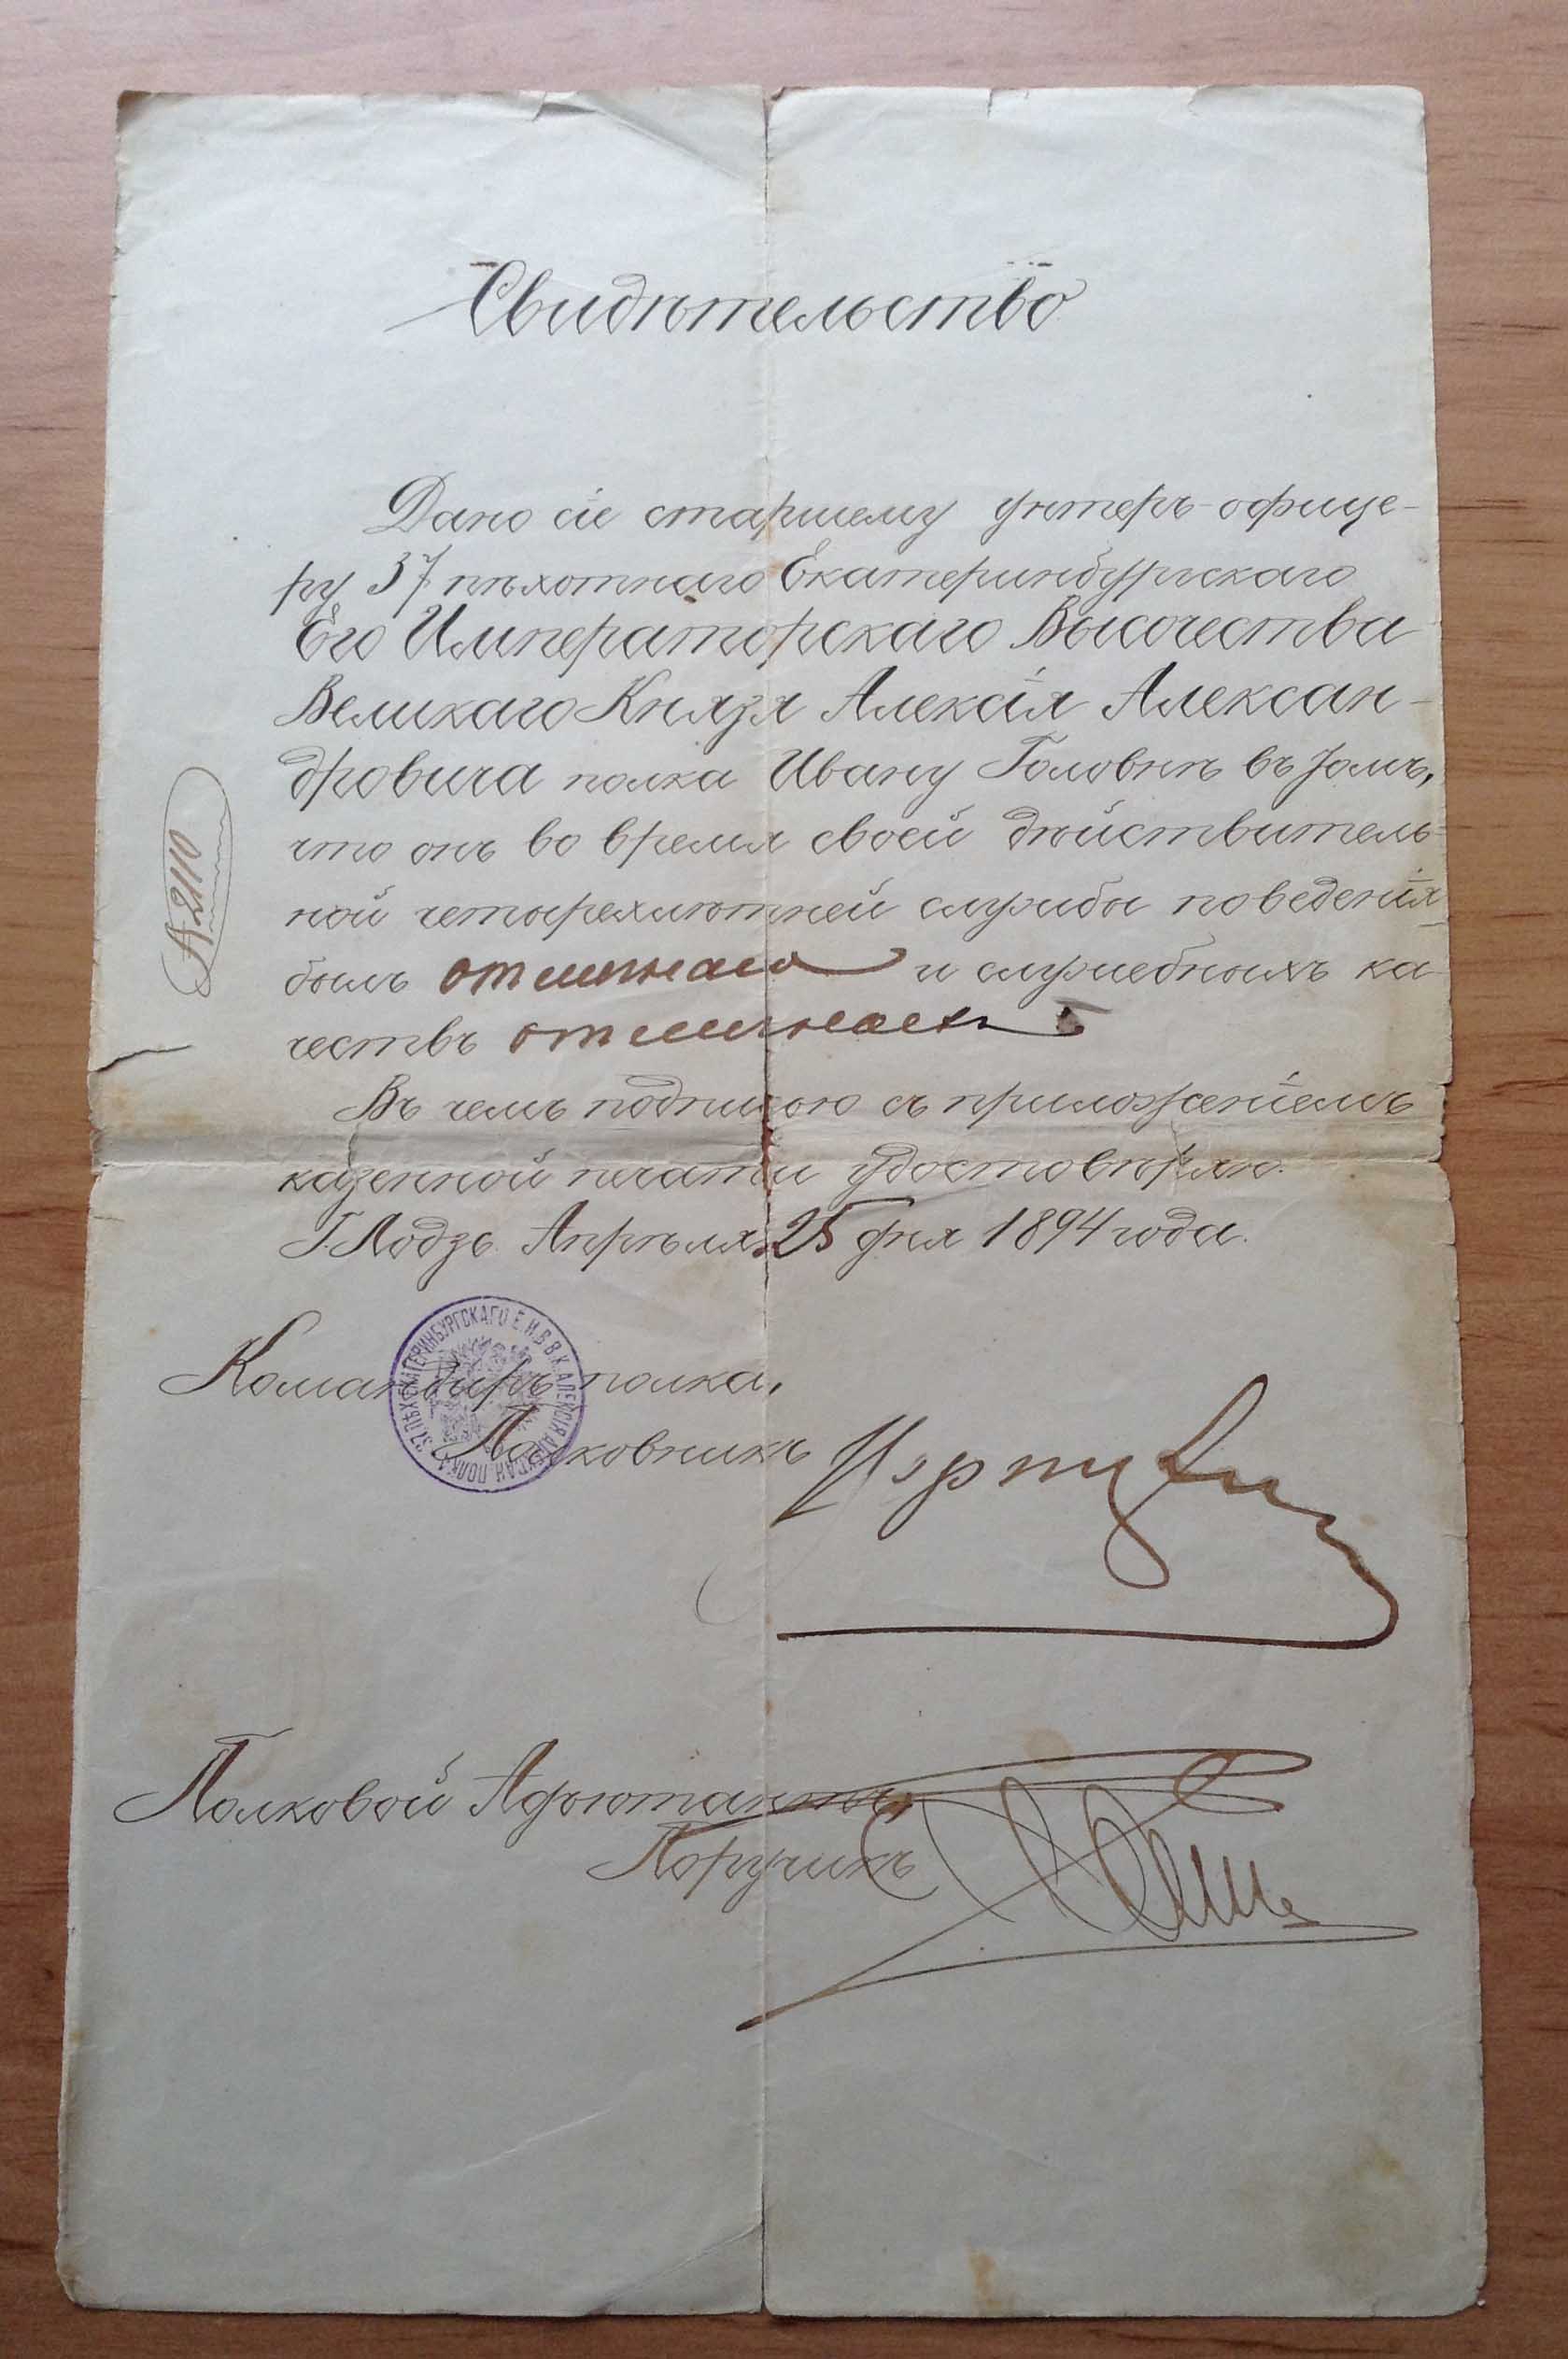 Свидѣтельство
Дано сіе старшему унтеръ-офице-
ру 37 пѣхотнаго Екатеринбургскаго
Его Императорскаго Высочества
Великаго Князя Алексія Алексан-
дровича полка Ивану Головнѣ въ томъ,
что онъ во время своей дѣйствитель-
ной четырехлѣтней службы поведенія
былъ отличнаго и служебныхъ ка
чествъ отличныхъ
Въ чемъ подписью съ приложеніемъ
казенной печати удостовѣряю.
Г. Лодзь Апрѣля 25 дня 1894 года.
№ 2110
Командиръ полка,
Полковникъ
37. ПѢХ. ЕКАТЕРИНБУРГСКАГО Е. И. В. В. К. АЛЕКСІЯ АЛЕКСАН. ПОЛКА
Полковой Адъютантъ,
Поручикъ